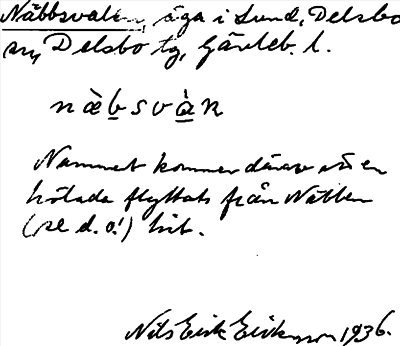 Näbbsvalen, äga i Lund, Delsbo
sn, Delsbo tg, Gävleb. l.
nὰbsvὰn
Namnet kommer därav att en
hölada flyttats från Nätten
(se d. o!) hit.
Nils Erik Eriksson 1936.